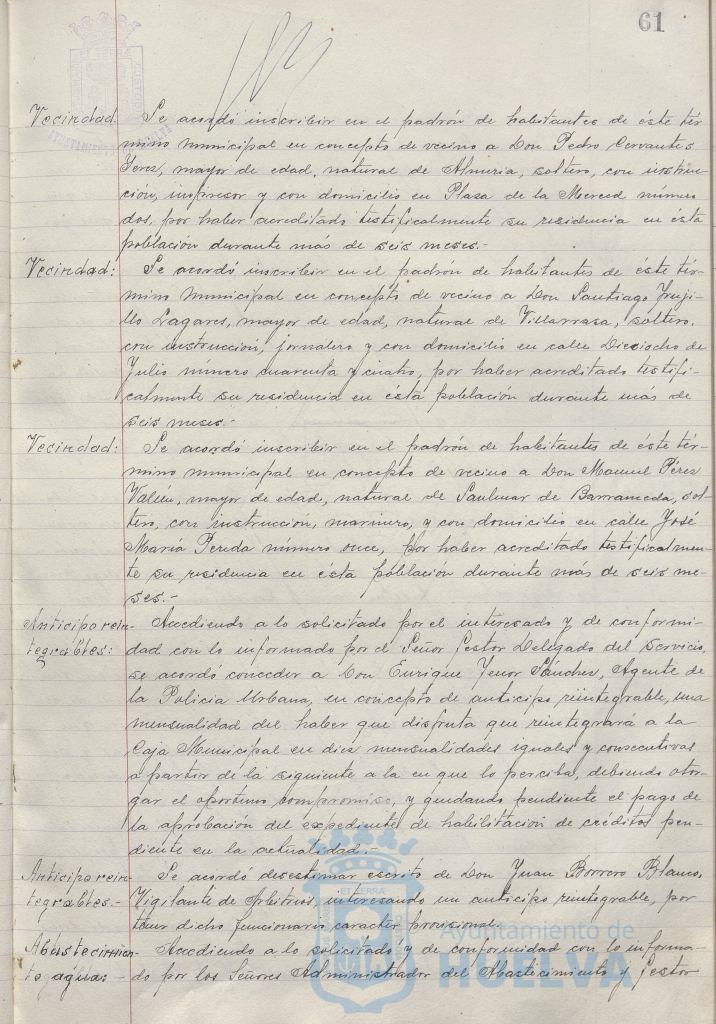 61
Vecindad. Se acordó inscribir en el padrón de habitantes de éste tér-
mino municipal en concepto de vecino a Don Pedro Cervantes
Yerez, mayor de edad, natural de Almería, soltero, con instruc-
ción, impresor y con domicilio en Plaza de la Merced número
dos, por haber acreditado testificalmente su residencia en esta
población durante más de seis meses.-
Vecindad: Se acordó inscribir en el padrón de habitantes de éste tér-
mino municipal en concepto de vecino a Don Santiago Truji-
llo Lagares, mayor de edad, natural de Villarrasa, soltero,
con instrucción, jornalero y con domicilio en calle Dieciocho de
Julio número cuarenta y cuatro, por haber acreditado testifi-
calmente su residencia en ésta población durante más de
seis meses.-
Vecindad: Se acordó inscribir en el padrón de habitantes de éste tér-
mino municipal en concepto de vecino a Don Manuel Pérez
mayor de edad, natural de Sanlucar de Barrameda, sol-
tero, con instrucción, marinero, y con domicilio en calle José
María Pereda número once, por haber acreditado testificalmen-
te su residencia en ésta población durante más de seis me-
ses.-
Anticipo rein- Accediendo a lo solicitado por el interesado y de conformi-
tegrables: dad con lo informado por el Señor Gestor Delegado del Servicio,
se acordó conceder a Don Enrique Sánchez, Agente de
la Policia Urbana, en concepto de anticipo reintegrable, una
mensualidad del haber que disfruta que reintegrará a la
Caja Municipal en diez mensualidades iguales y consecutivas
a partir de la siguiente a la en que lo perciba, debiendo otor-
gar el oportuno compromiso, y quedando pendiente el pago de
la aprobación del expediente de habilitación de créditos pen-
diente en la actualidad.-
Anticipo rein- Se acordó desestimar escrito de Don Juan Borrero Blanco,
tegrables.- Vigilante de Arbitrios, interesando un anticipo reintegrable, por
tener dicho funcionario caracter provisional.
Abastecimien- Accediendo a lo solicitado y de conformidad con lo informa-
to agua: - do por los Señores Administrador del Abastecimiento y Gestor
Ayuntamiento de
HUELVA